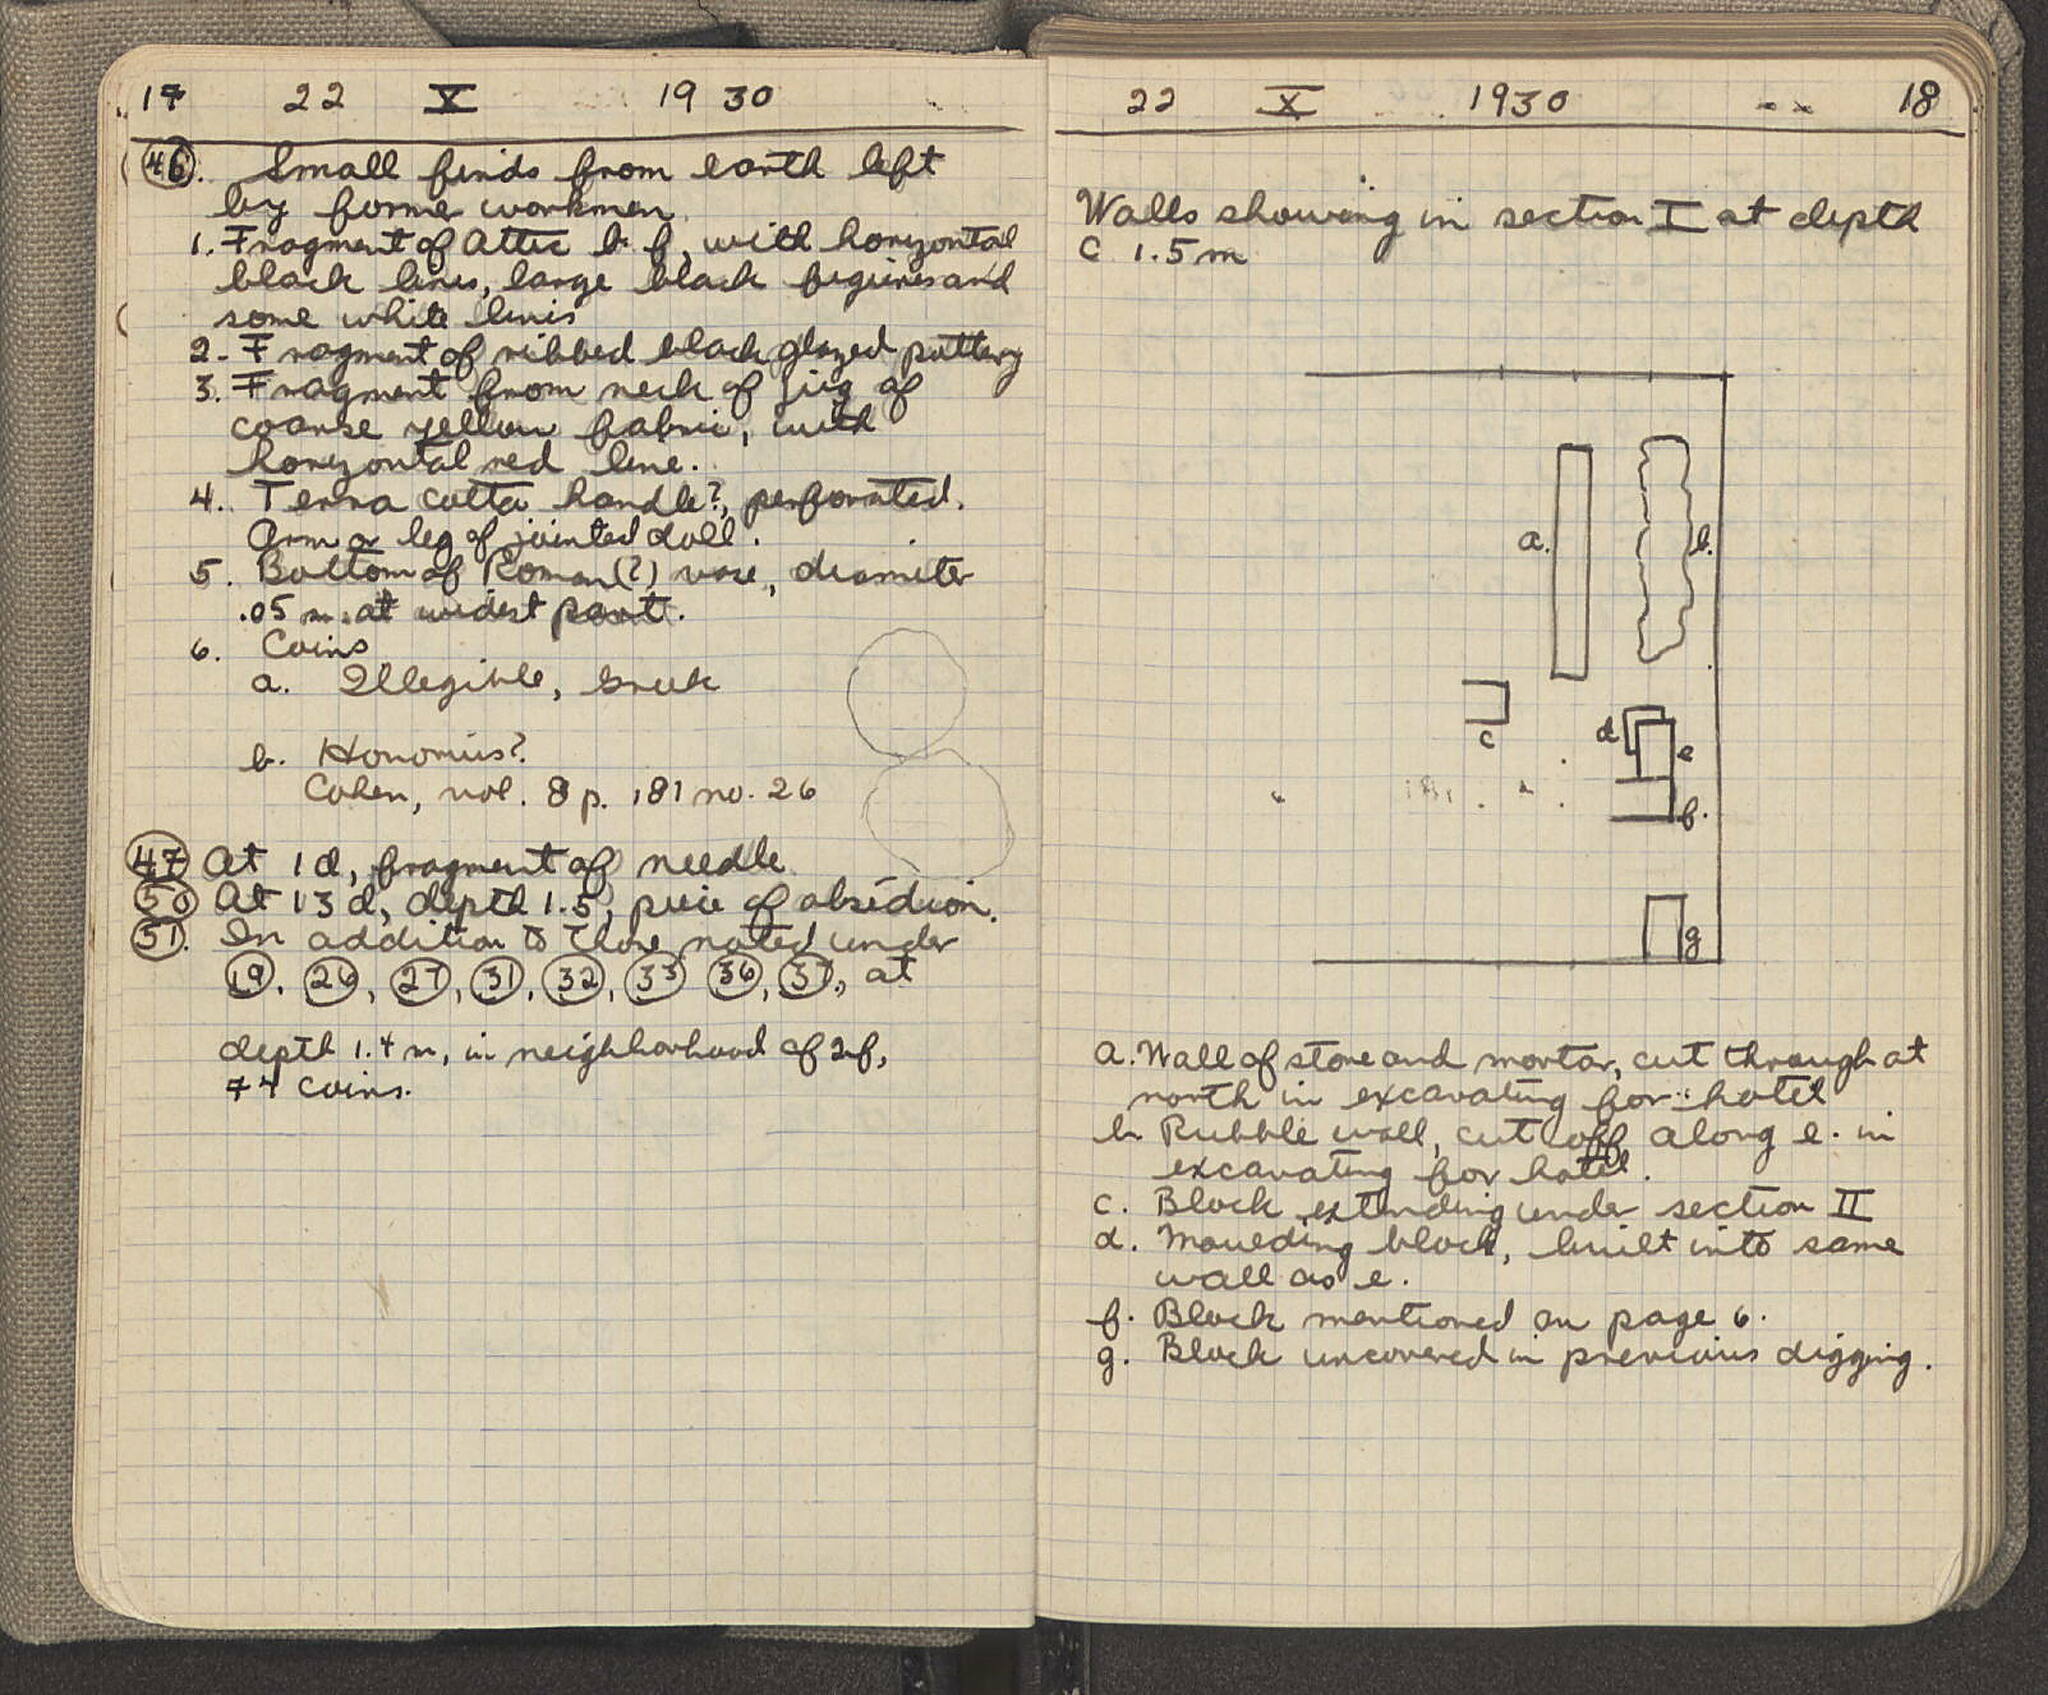 17 22 X 1930
46. Small finds from earth left
by former workmen.
1. Fragment of Attic b. f., with horizontal
black lines, large black figures and
some white lines
2. Fragment of ribbed black glazed pottery
3. Fragment from neck of jug of
coarse yellow fabric, with
horizontal red line.
4. Terra cotta handle?, perforated.
Arm or leg of jointed doll.
5. Bottom of Roman(?) vase, diameter
.05 m. at widest part.
6. Coins
a. Illegible, Greek
b. Honorius?
Cohen, vol. 8 p. 181 no. 26
47 At 1d, fragment of needle
50 At 13d, depth 1.5, piece of obsidian.
51. In addition to those noted under
19, 26, 27, 31, 32, 33 36, 37, at
depth 1.4 m, in neighborhood of 2f,
74 coins.
22 X 1930 18
Walls showing in section I at depth
c 1.5m
a.
b.
c
d
e
f.
g
a. Wall of stone and mortar, cut through at
north in excavating for hotel
b Rubble wall, cut off along e. in
excavating for hotel.
c. Block extending under section II
d. Moulding block, built into same
wall as e.
f. Block mentioned on page 6.
g. Block uncovered in previous digging.